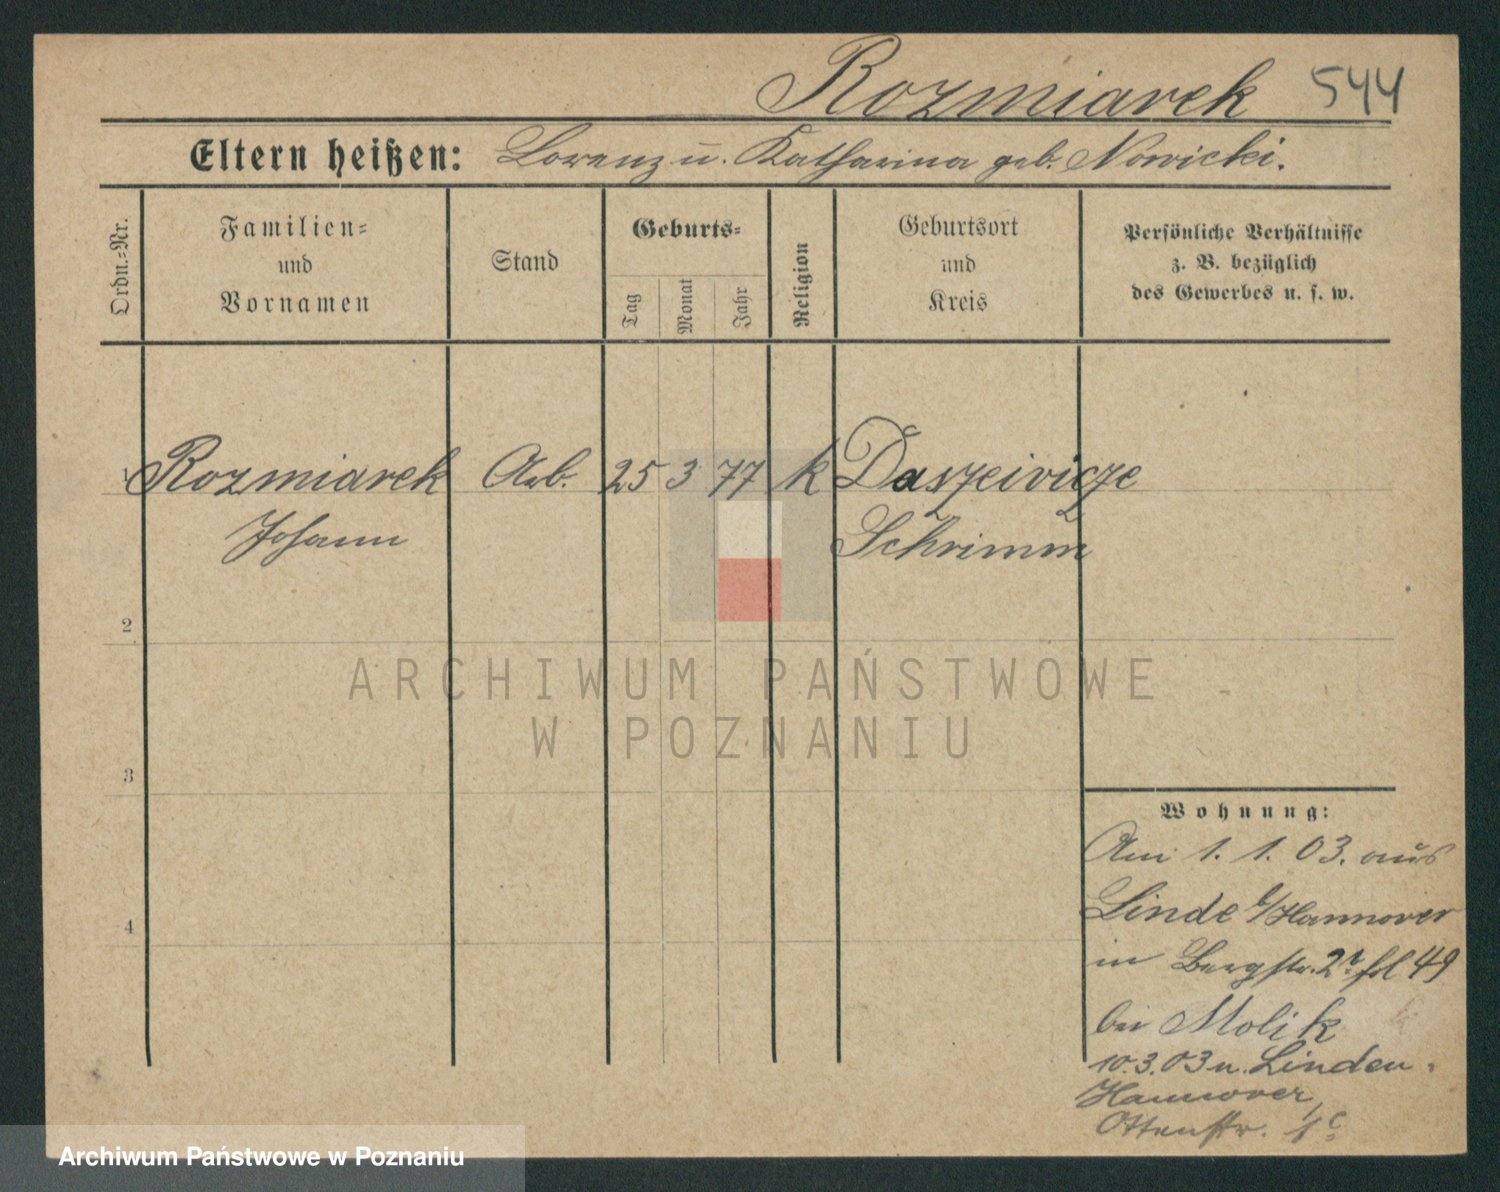 Rozmiarek 544
Eltern heißen: Lorenz u. Katharina geb. Nowicki.
Ordn.-Nr.
Familien-
und
Vornamen
Stand
Geburts-
Tag
Monat
Jahr
Religion
Geburtsort
und
Kreis
Persönliche Verhältnisse
z. B. bezüglich
des Gewerbes u. s. w.
1 Rozmiarek Arb. 25 3 77 k Daszeiwicze
Johann Schrimm
2
3
4
Wohnung:
Am 1. 1. 03. aus
Linde b/Hannover
in Bergstr. 2 fol 49
bei Molik
10.3.03 n. Linden-
Hannover,
Ottenstr. 1c
ARCHIWUM PAŃSTWOWE
W POZNANIU
Archiwum Państwowe w Poznaniu